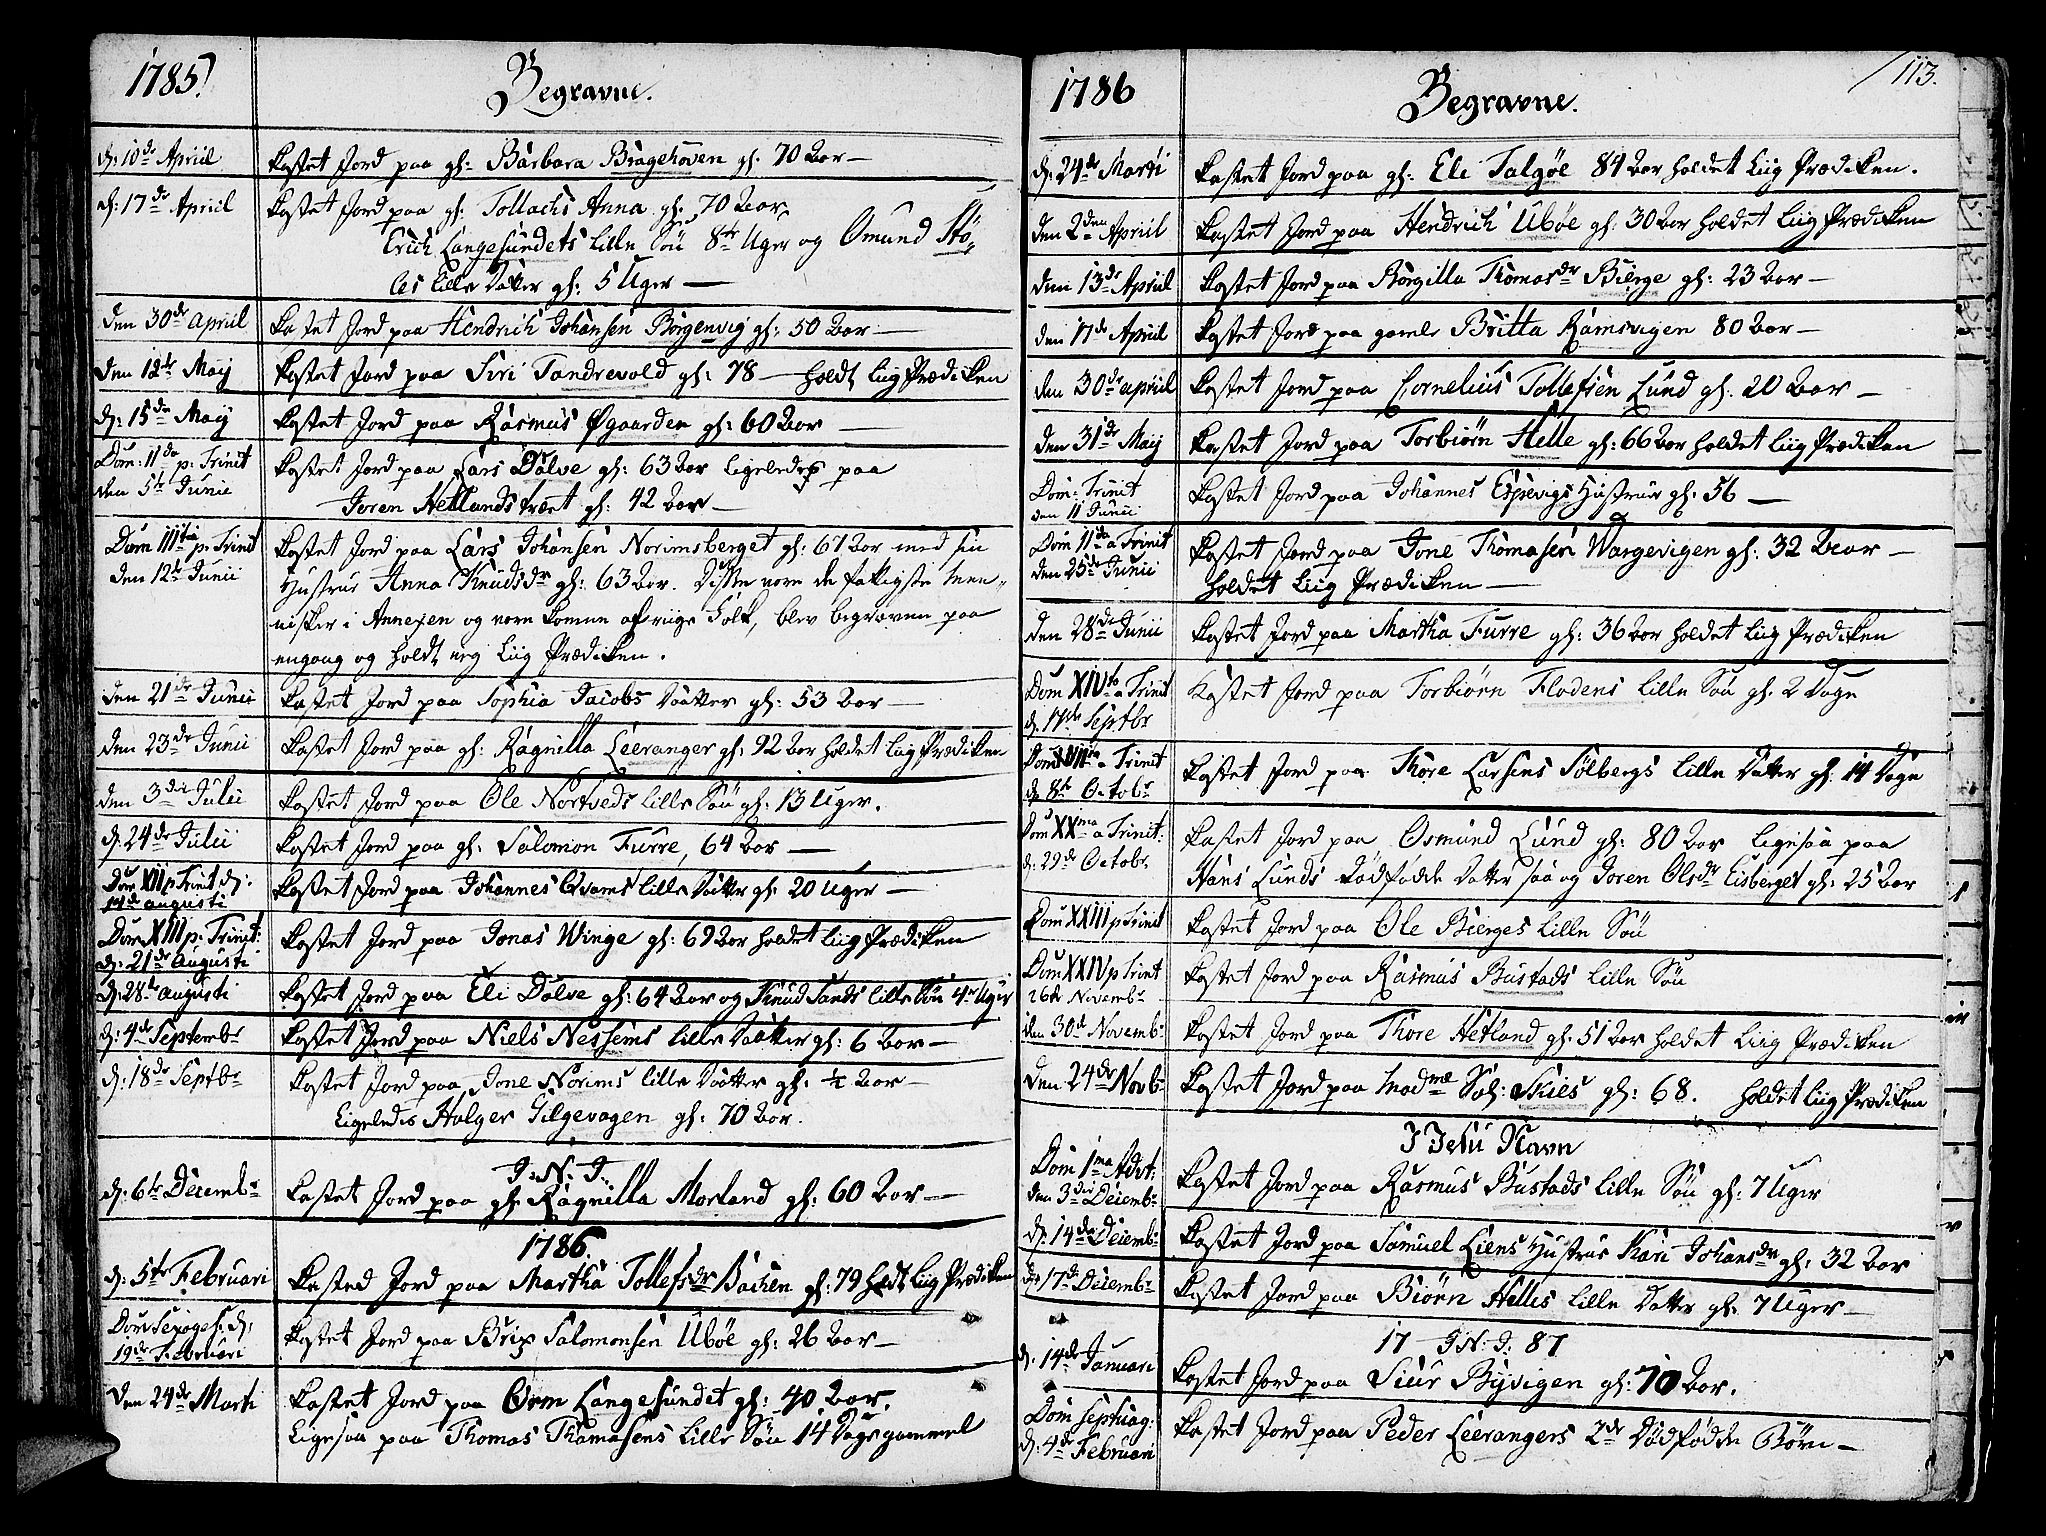 1785.
Begravne.
d: 10de Apriil kastet Jord paa gl: Barbara Bragehoven gl. 70 Aar —
d: 17de Apriil kastet Jord paa gl: Tollachs Anna gl: 70 Aar
Erich Langesundets lille Søn 8te Uger og Omund Stø-
les lille Datter gl: 5 Uger —
den 30de Apriil kastet Jord paa Hendrich Johansen Borgenvig gl: 50 Aar —
den 12te Maij kastet Jord paa Siri Tandrevold gl: 78 — holdt Liig Prædiken
d: 15de Maij kastet Jord paa Rasmus Øgaarden gl: 60 Aar —
Dom: 11da p: Trinit
den 5te Junii kastet Jord paa Lars Dalve gl: 63 Aar ligeledes paa
Joren Hetlandstræet gl: 42 Aar —
Dom IIItia p: Trinit kastet Jord paa Lars Johansen Norimsberget gl: 67 Aar med sin
den 12te Junii Hustrue Anna Knudsdr gl: 63 Aar. Disse vare de fattigste Men-
nisker i Annexen og vare komne af riige Folk, blev begraven paa
engang og holdt ieg Liig Prædiken.
den 21de Junii kastet Jord paa Sophia Jacobs Daatter gl: 53 Aar —
den 23de Junii kastet Jord paa gl: Ragnilla Leeranger gl: 92 Aar holdet Liig Prædiken
den 3die Julii kastet Jord paa Ole Nortveds lille Søn gl: 13 Uger.
d: 24de Julii kastet Jord paa gl: Salomon Furre, 64 Aar —
Dom XII p Trinit d:
14de Augusti kastet Jord paa Johannes Qvams lille Daatter gl: 20 Uger —
Dom XIII p: Trinit: kastet Jord paa Jonas Winge gl: 69 Aar holdet Liig Prædiken
d: 21de Augusti
d: 28de Augusti kastet Jord paa Eli Dalve gl: 64 Aar og Knud Sands lille Søn 4re Uger
d: 4de Septembr kastet Jord paa Niels Nessems lille Daatter gl: 6 Aar —
d: 18de Septbr kastet Jord paa Jone Norims lille Daatter gl: ½ Aar —
Ligeledes Halger Gilgevagen gl: 70 Aar.
J. N. J.
d: 6te Decembr kastet Jord paa gl: Ragnilla Morland gl: 60 Aar —
1786.
d: 5te Februari kasted Jord paa Martha Tollefsdr Backen gl: 79 holdt Liig Prædiken
Dom Sexages: d: kastet Jord paa Brix Salomonsen Ubøe gl: 26 Aar —
19de Februari
den 24de Marti kastet Jord paa Orm Langesundet gl: 40 Aar.
Ligesaa paa Thomas Thomasens lille Søn 14 Dage gammel
113.
1786
Begravne.
d: 24de Marti kastet Jord paa gl: Eli Talgøe 84 Aar holdet Liig Prædiken.
den 2den Apriil kastet Jord paa Hendrich Ubøe gl: 30 Aar holdet Liig Prædiken
den 13de Apriil kastet Jord paa Borgilla Thomasdr Bierge gl: 23 Aar —
den 17de Apriil kastet Jord paa gaml Britta Ramsvigen 80 Aar —
den 30de apriil kastet Jord paa Cornelius Tollefsen Lund gl: 20 Aar —
den 31de Maij kastet Jord paa Torbiørn Helle gl: 66 Aar holdet Liig Prædiken
Dom: Trinit kastet Jord paa Johannes Espevigs Hustrue gl: 56 —
den 11 Junii
Dom 11da a Trinit kastet Jord paa Jone Thomasen Wargevigen gl: 32 Aar —
den 25de Junii holdet Liig Prædiken —
den 28de Junii kastet Jord paa Martha Furre gl: 36 Aar holdet Liig Prædiken
Dom XIVto a Trinit kastet Jord paa Torbiørn Fladens lille Søn gl: 2 Dage
d. 17de Septbr
Dom XVIIma a Trinit kastet Jord paa Thore Larsens Solbergs lille Datter gl: 14 Dage
d. 8te Octobr
Dom XXma a Trinit: kastet Jord paa Osmund Lund gl: 80 Aar ligesaa paa
d: 29de Octobr Hans Lunds dødfødde Datter saa og Joren Olsdr Eisberget gl: 25 Aar
Dom XXIII p Trinit kastet Jord paa Ole Bierges lille Søn
Dom XXIV p Trint kastet Jord paa Rasmus Bustads lille Søn
26de Novembr
den 30de Novembr kastet Jord paa Thore Hetland gl: 51 Aar holdet Liig Prædiken
den 24de Novb: kastet Jord paa Madme Sal: Skies gl: 68. holdet Liig Prædiken
I Jesu Navn
Dom 1ma Advt: kastet Jord paa Rasmus Bustads lille Søn gl: 7 Uger
den 3die Decembr
d. 14de Decembr kastet Jord paa Samuel Liens Hustrue Kari Johansdr gl: 32 Aar
d: 17de Decembr kastet Jord paa Biørn Helles lille Datter gl: 7 Uger —
17 J: N: J: 87
d: 14de Januari kastet Jord paa Siur Byvigen gl: 70 Aar.
Dom Septuag: kastet Jord paa Peder Leerangers 2de Dødfødde Børn —
d: 4de Februari